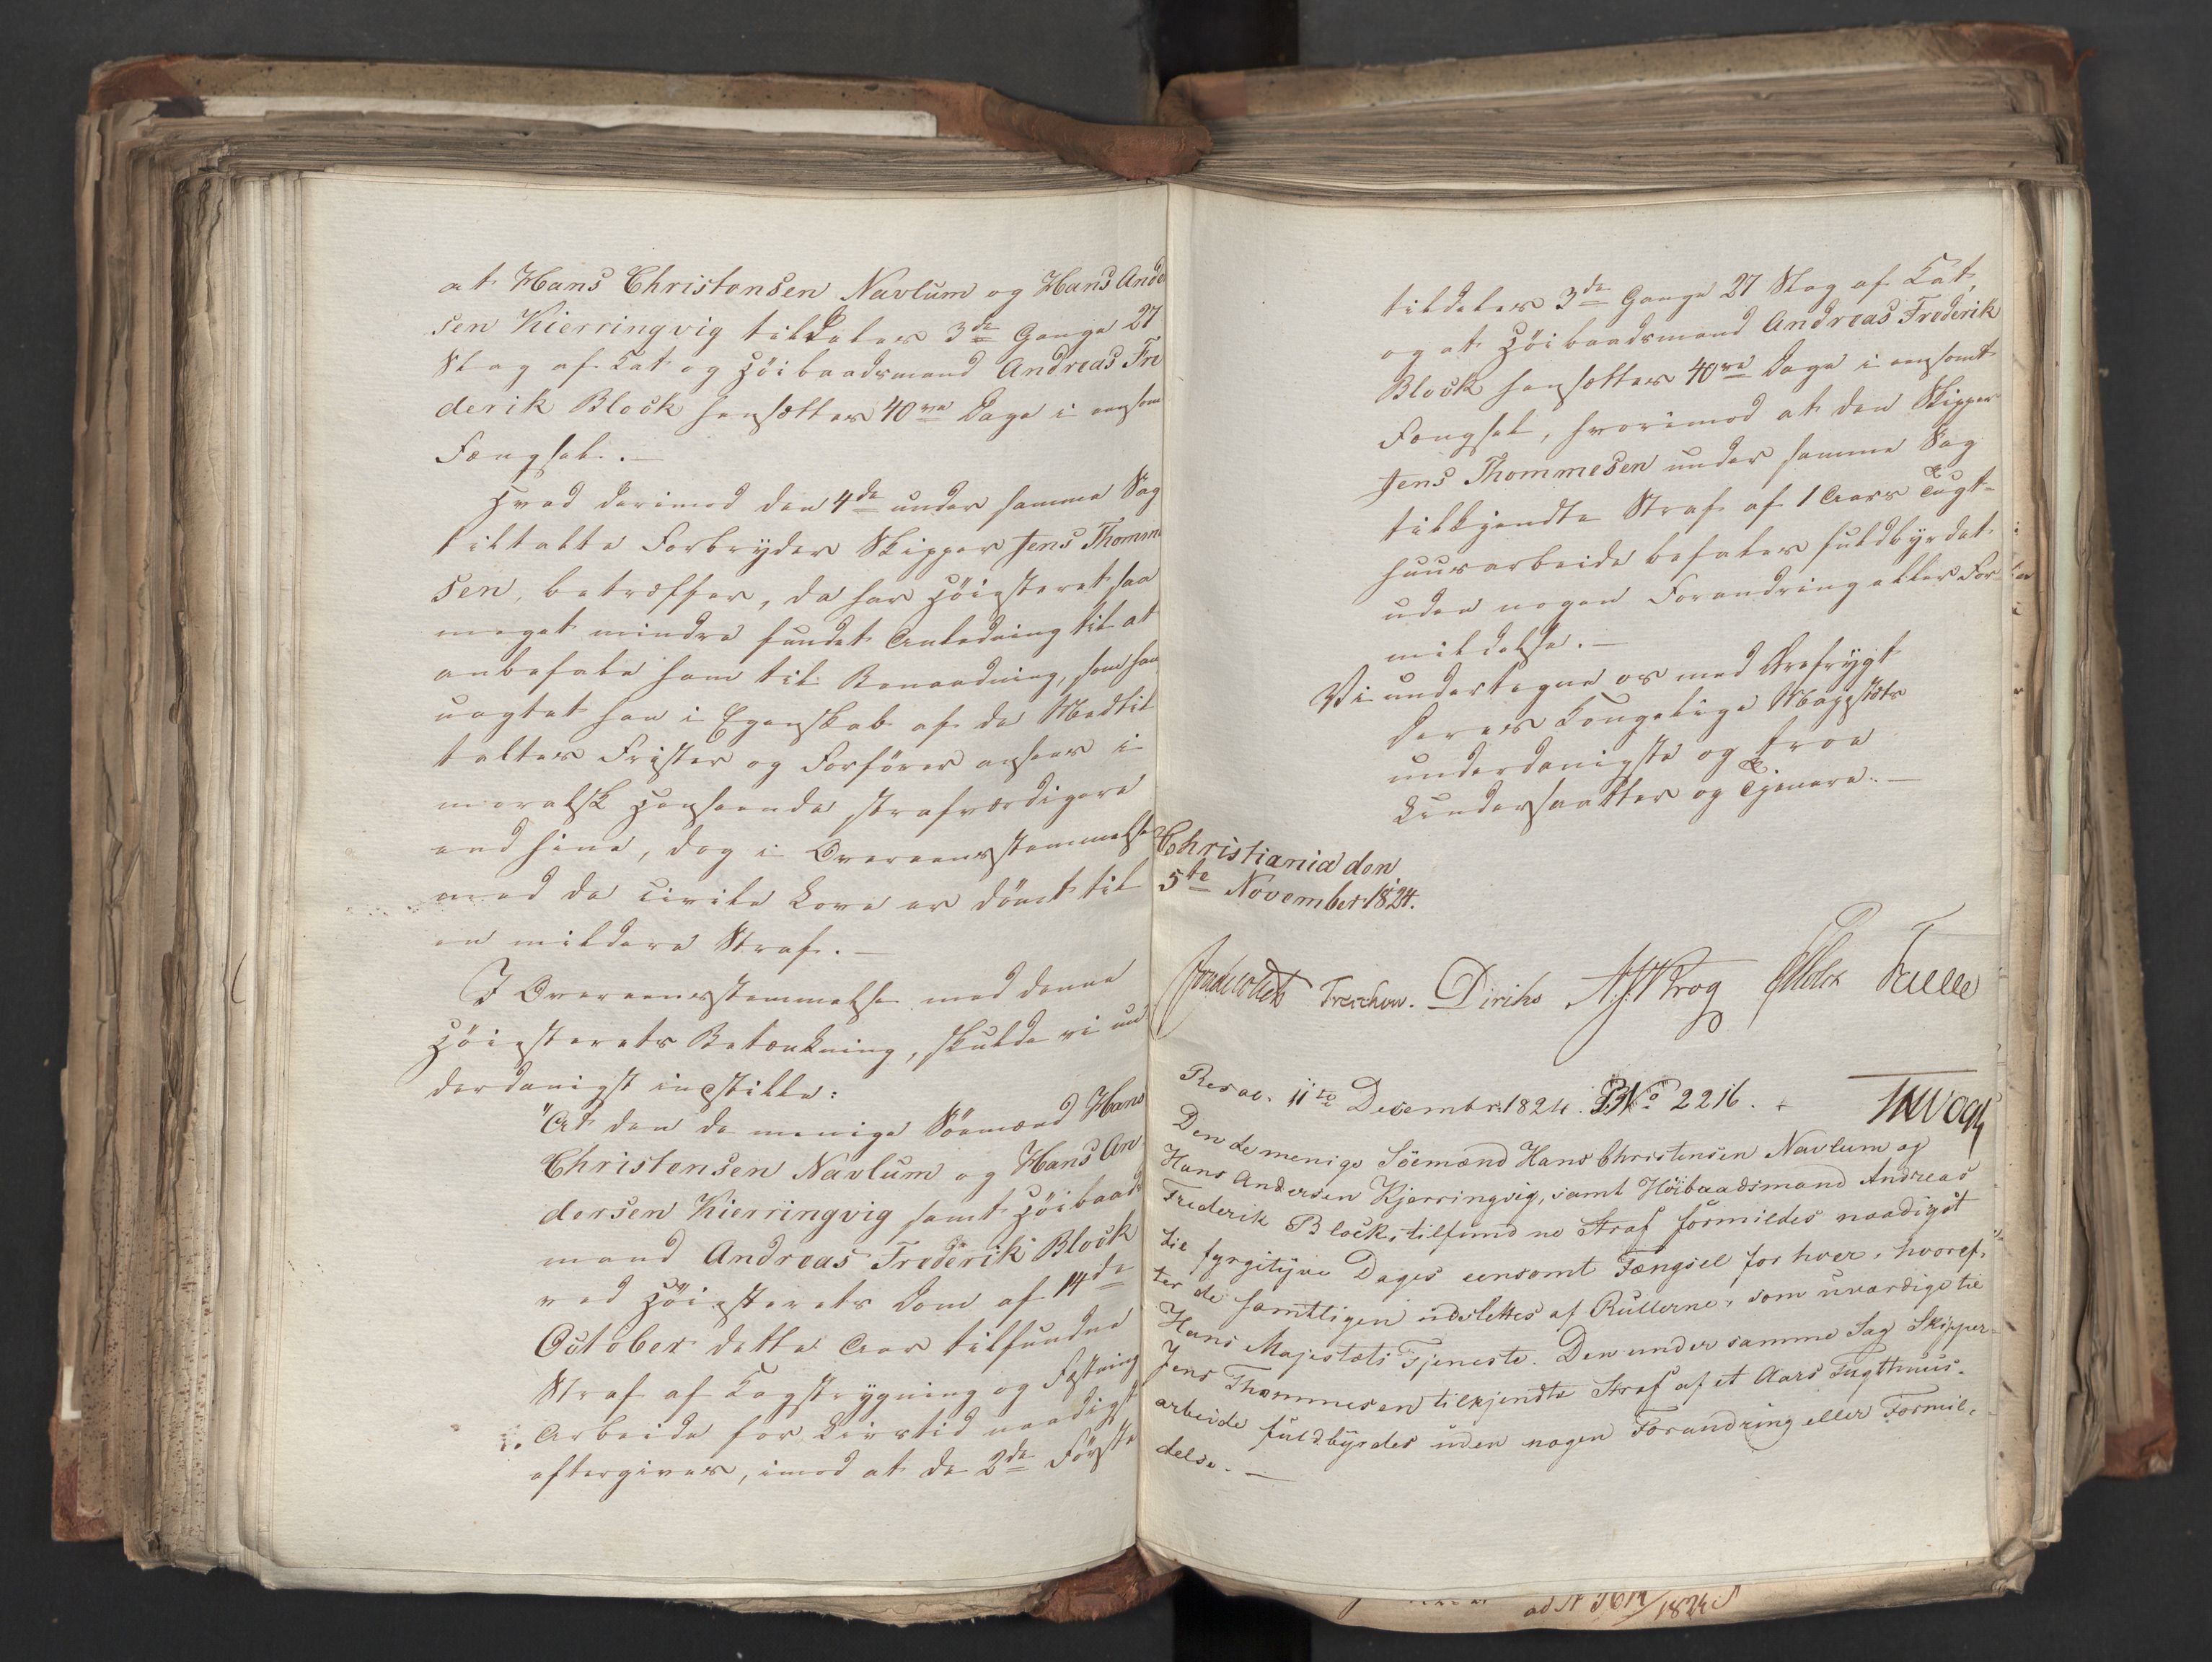 at Hans Christensen Navlum og Hans Ander
sen Kierringvig tildeles 3de Gange 27
Slag af Kat og Höibaadsmand Andreas Fre
derik Block hensættes 40ve Dage i eensom
Fængsel. —
Hvad derimod den 4de under samme Sag
tiltalte Forbryder Skipper Jens Thomme
sen, betræffer, da har Höiesteret saa
meget mindre fundet Anledning til at
anbefale ham til Benaadning, som han
uagtet han i Egenskab af de Medtil
taltes Frister og Forförer ansees i
moralsk Henseende strafværdigere
end hine, dog i Overeensstemmelse
med de civile Love er dömt til
en mildere Straf. —
I Overeensstemmelse med denne
Höiesterets Betænkning, skulde vi un
derdanigst indstille:
"At den de menige Söemænd Hans
Christensen Navlum og Hans An
dersen Kierringvig samt Höibaads
mand Andreas Frederik Block
ved Höiesterets Dom af 14de
October dette Aar tilfundne
Straf af Kagstrygning og Fæstnings
Arbeide for Livstid naadigst
eftergives, imod at de 2de Förste
tildeles 3de Gange 27 Slag af Kat,
og at Höibaadsmand Andreas Frederik
Block hensættes 40ve Dage i eensomt
Fængsel, hvorimod at den Skipper
Jens Thommesen under samme Sag
tilkjendte Straf af 1 Aars Tugt-
huusarbeide befales fuldbyrdet
uden nogen Forandring eller For-
mildelse. —
Vi undertegne os med Ærefrygt
Deres Kongelige Majestæts
underdanigste og troe
Undersaatter og Tjenere. —
Christiania den
5te November 1824.
Treschow. Diriks Krog
Resol. 11te Decembr. 1824. P. No 2216. Vogt
Den de menige Söemænd Hans Christensen Navlum og
Hans Andersen Kjerringvig, samt Höibaadsmand Andreas
Frederik Block, tilfundne Straf formildes naadigst
til fyrgitijve Dages eensomt Fængsel for hver, hvoref-
ter de samtligen udslettes af Rullerne, som uværdige til
Hans Majestæts Tjeneste. Den under samme Sag Skipper
Jens Thommesen tilkjendte Straf af et Aars Tugthuus-
arbeide fuldbyrdes uden nogen Forandring eller Formil-
delse. —